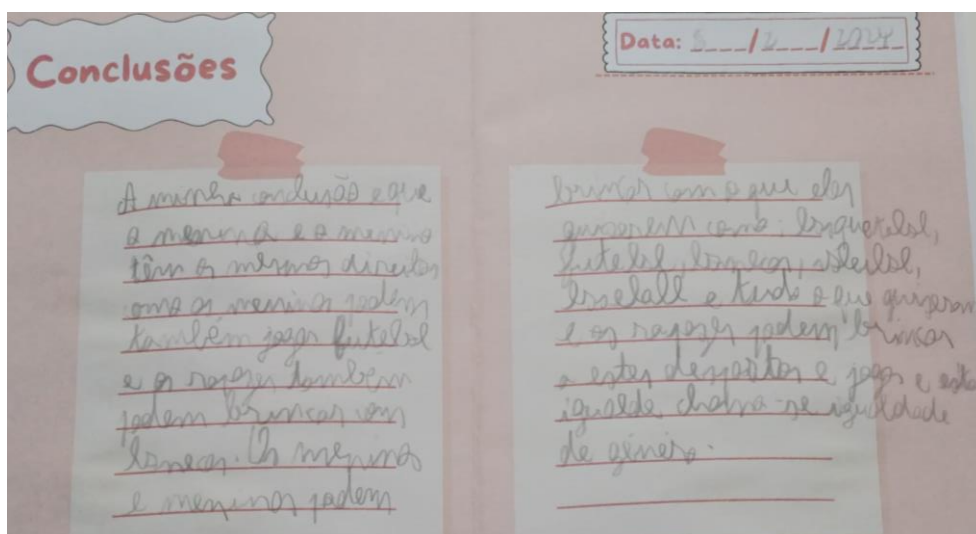 Conclusões
Data: 5___/2___/2024_
A minha conclusão e que
a menina e o menino
têm os mesmos direitos
como as meninas podem
também jogar futebol
e os rapazes também
podem brincar com
bonecas. Os meninos
e meninas podem
brincar com o que eles
quiserem como: basquetebol,
futebol, bonecas, voleibol,
baseball e tudo o que quiserem
e os rapazes podem brincar
a estes desportos e jogos e esta
igualde chama-se igualdade
de género.